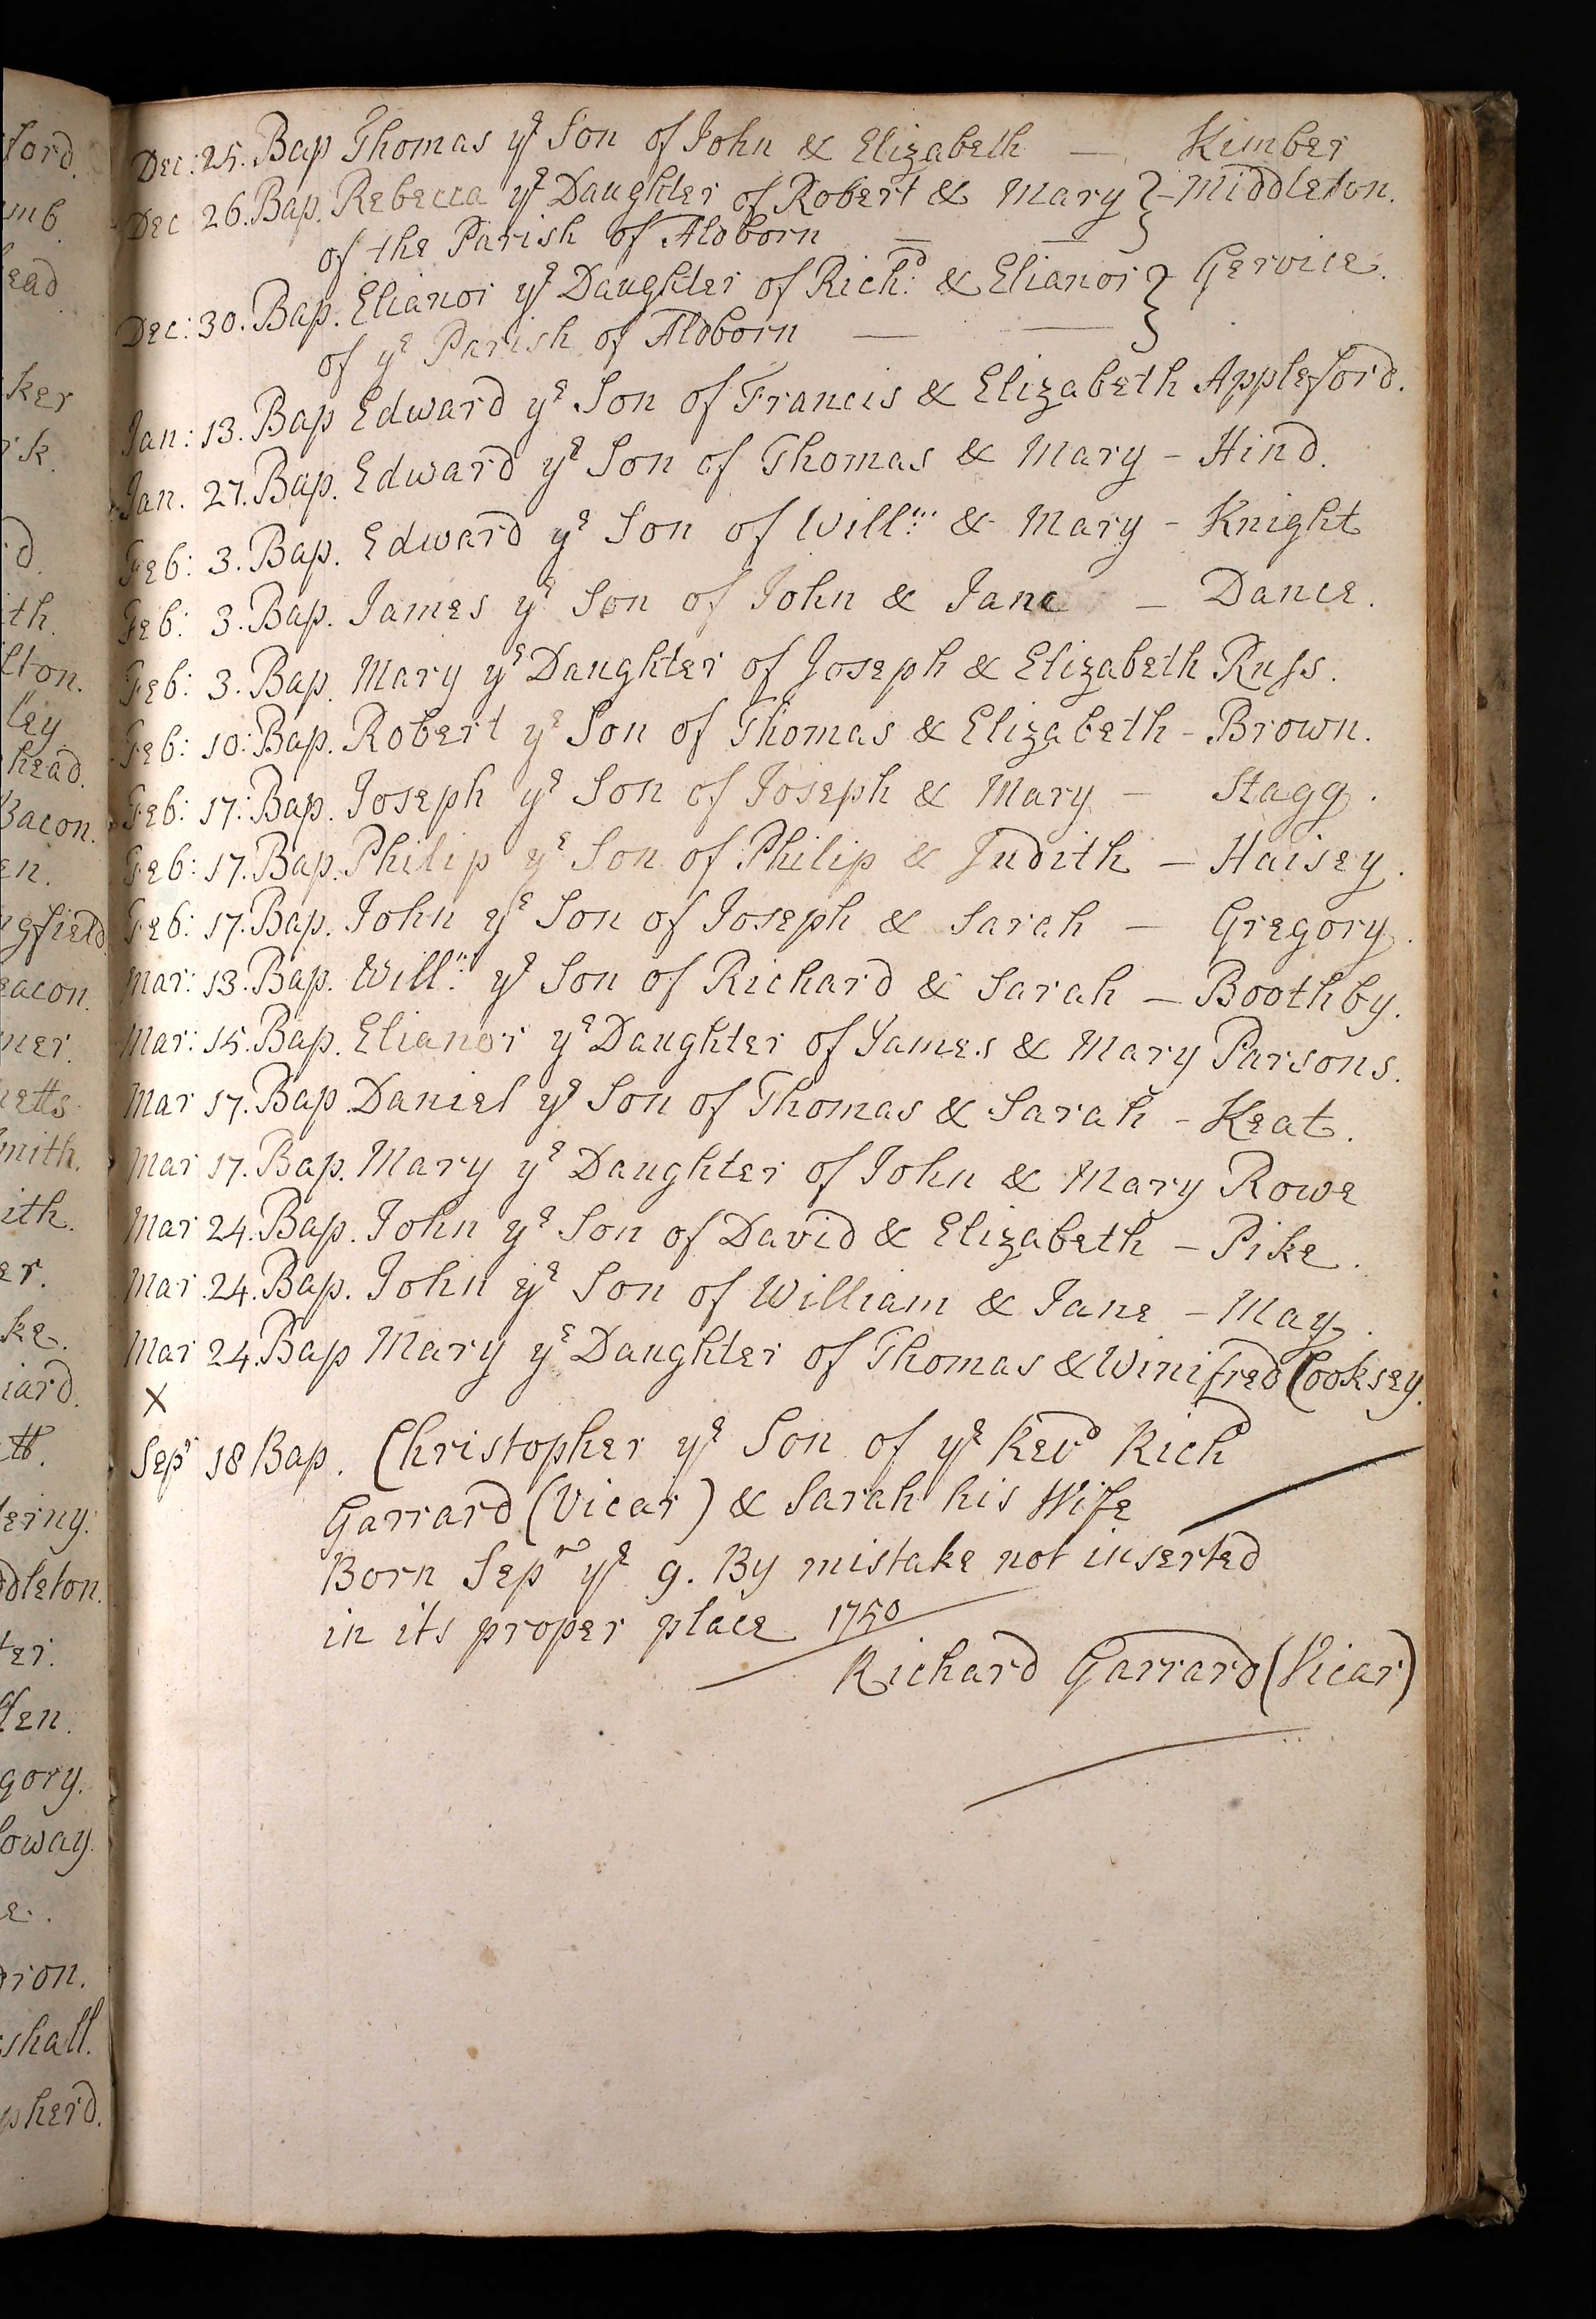 Dec: 25. Bap Thomas ye Son of John & Elizabeth — Kimber
Dec 26. Bap. Rebecca ye Daughter of Robert & Mary } - Middleton.
of the Parish of Aldborn — —
Dec: 30. Bap. Elianor ye Daughter of Richd. & Elianor } Gervice.
of ye Parish of Aldborn — —
Jan: 13. Bap Edward ye Son of Francis & Elizabeth Appleford.
Jan. 27. Bap. Edward ye Son of Thomas & Mary - Hind.
Feb: 3. Bap. Edward ye Son of Willm: & Mary - Knight
Feb: 3. Bap. James ye Son of John & Jane — Dance.
Feb: 3. Bap. Mary ye Daughter of Joseph & Elizabeth Russ.
Feb: 10: Bap. Robert ye Son of Thomas & Elizabeth - Brown.
Feb: 17: Bap. Joseph ye Son of Joseph & Mary — Stagg.
Feb: 17. Bap. Philip ye Son of Philip & Judith — Haisey.
Feb: 17. Bap. John ye Son of Joseph & Sarah — Gregory.
Mar: 13. Bap. Willm: ye Son of Richard & Sarah — Boothby.
Mar: 15. Bap. Elianor ye Daughter of James & Mary Parsons.
Mar 17. Bap. Daniel ye Son of Thomas & Sarah - Keat.
Mar 17. Bap. Mary ye Daughter of John & Mary Rowe
Mar 24. Bap. John ye Son of David & Elizabeth - Pike.
Mar 24. Bap. John ye Son of William & Jane - May.
Mar 24. Bap Mary ye Daughter of Thomas & Winifred Cooksey.
X
Sepr 18 Bap. Christopher ye Son of ye Revd Rich
Garrard (Vicar) & Sarah his Wife
Born Sepr ye 9. By mistake not inserted
in its proper place 1750
Richard Garrard (Vicar)